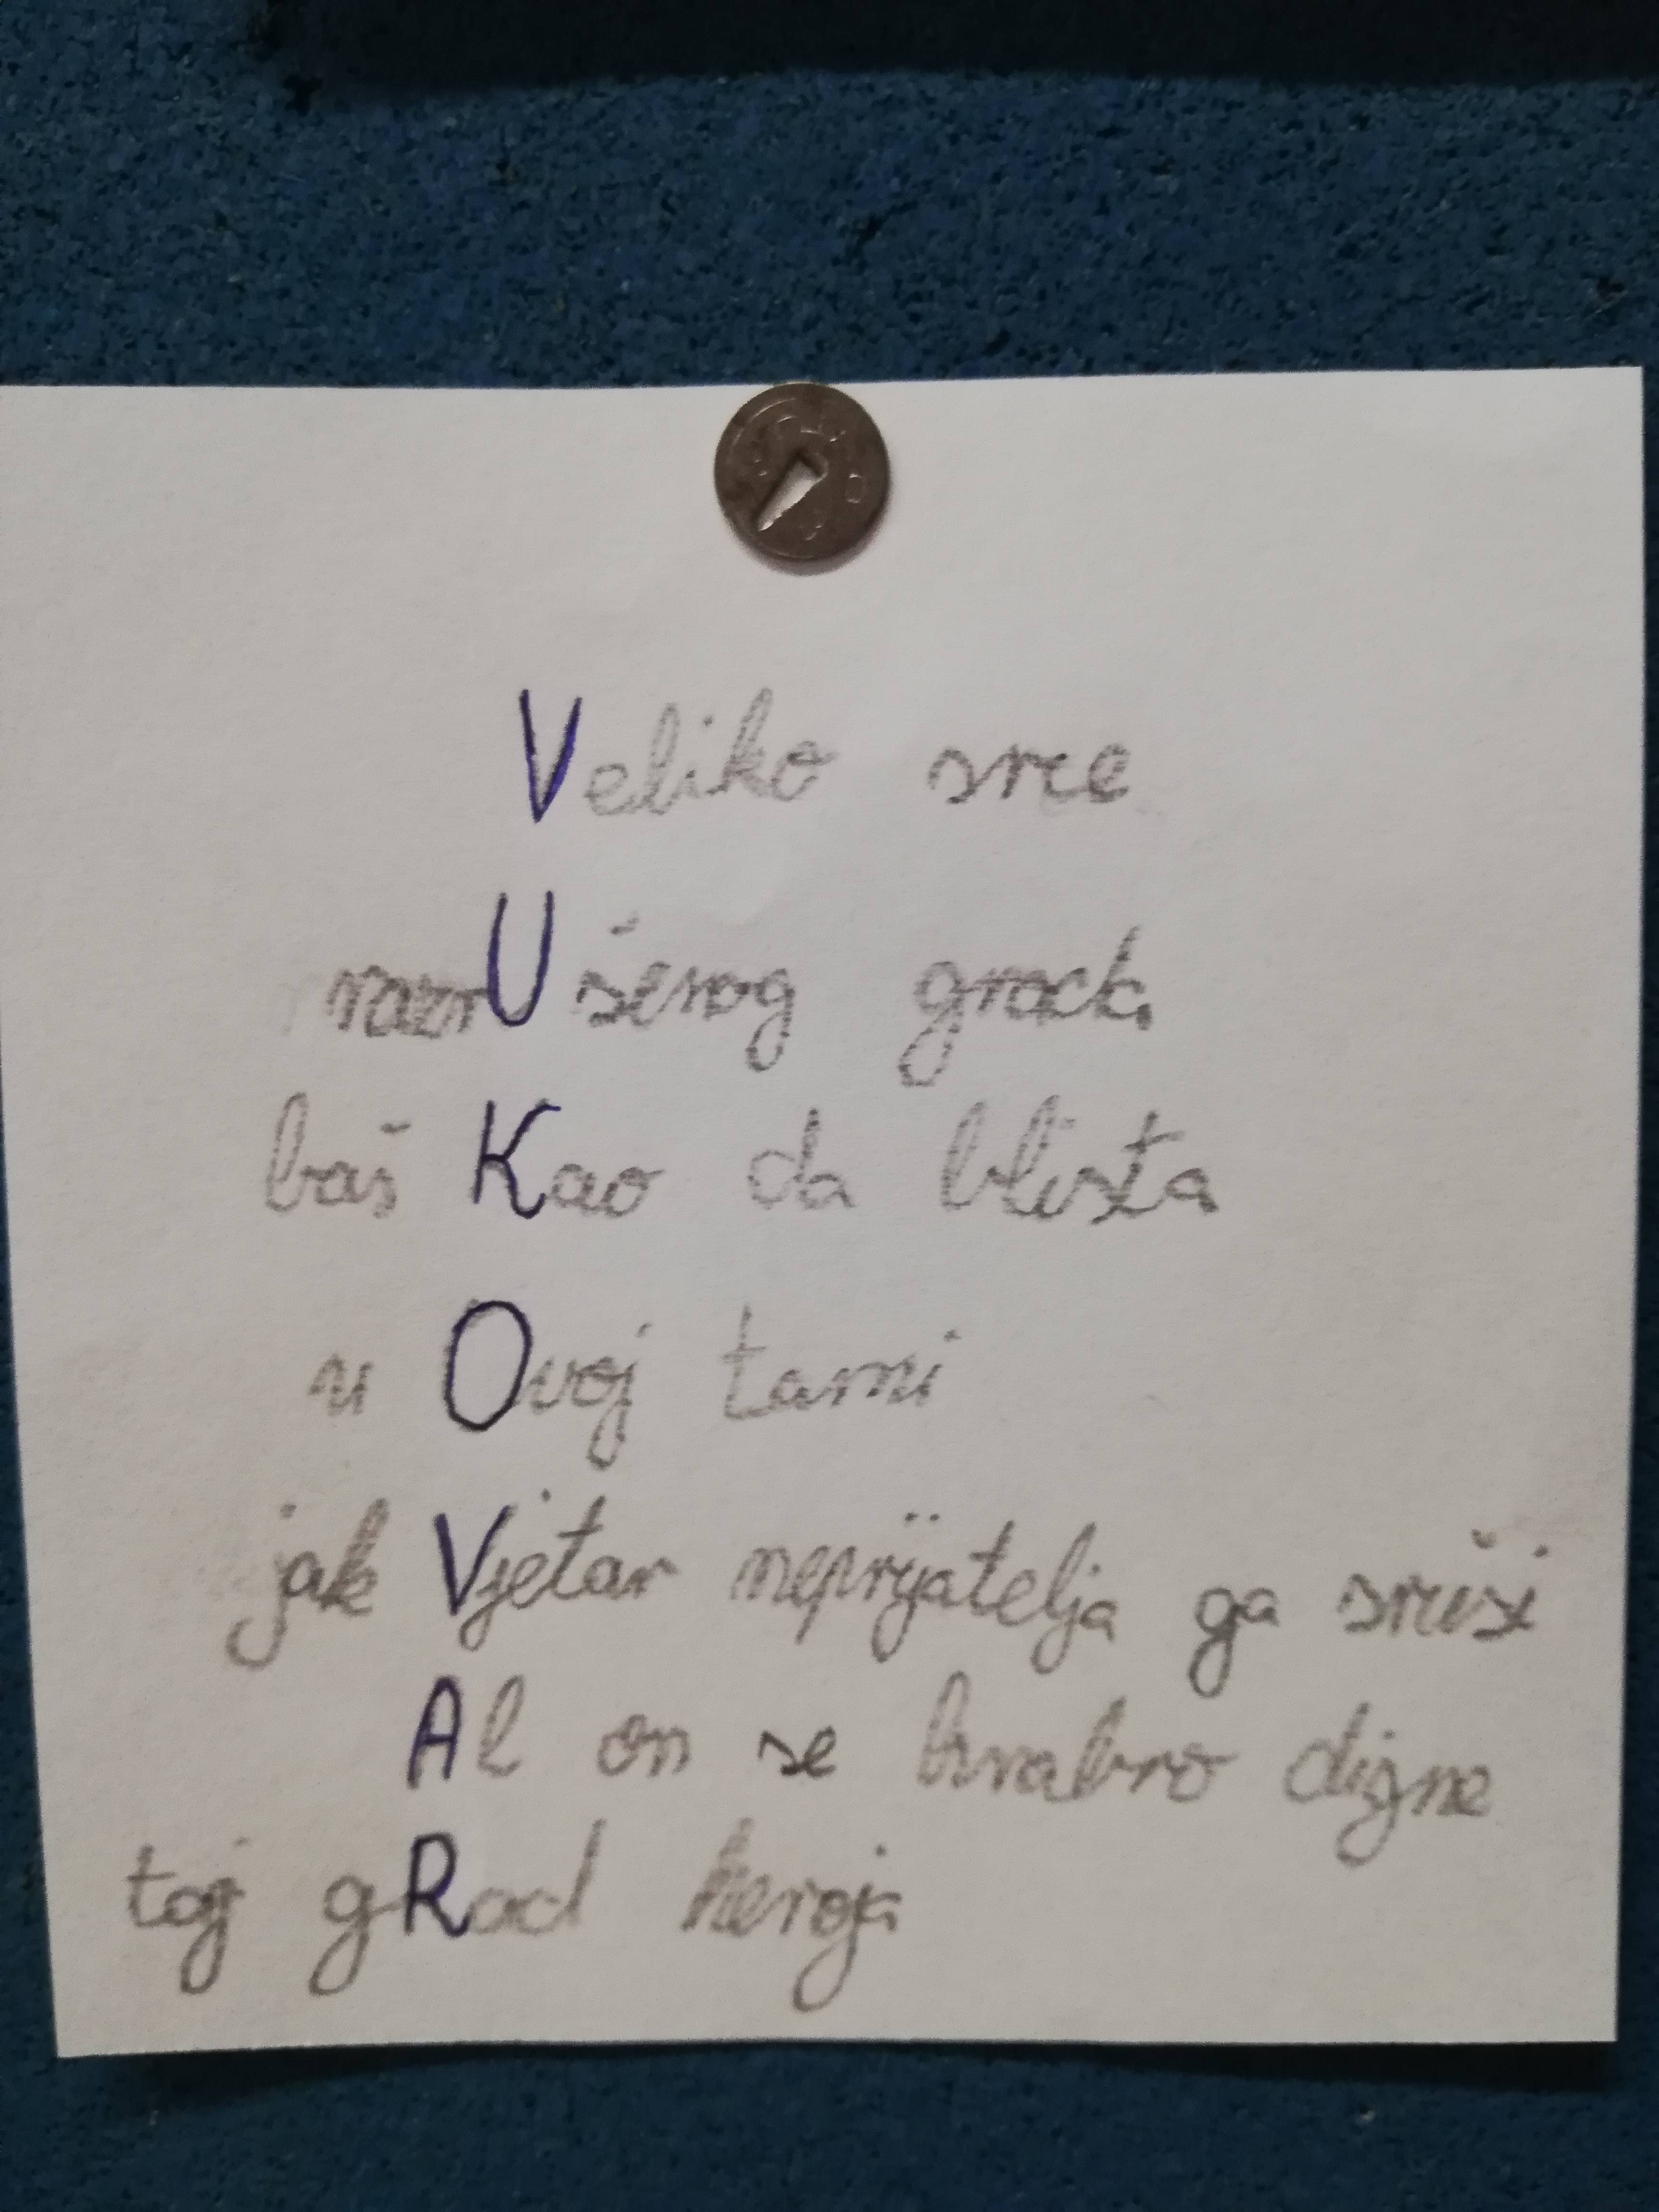 Veliko srce
razrUšenog grada
baš Kao da blista
u Ovoj tami
jak Vjetar neprijatelja ga sruši
Al on se hrabro digne
taj gRad heroja